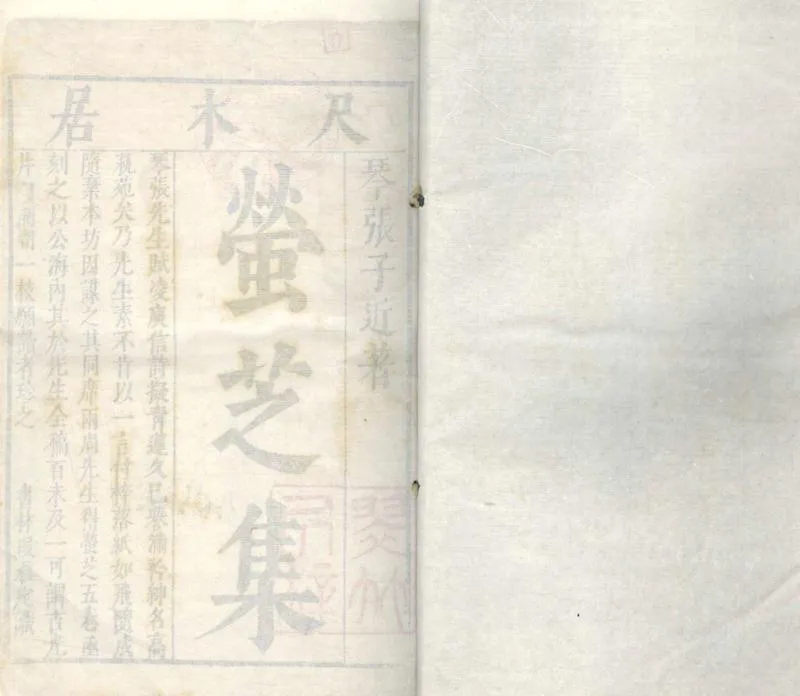 尺木居
琴張子近著
螢芝集
琴張先生賦凌庾信詩擬青蓮久已滿紳名高
苑矣乃先生素不肯以一言付梓落紙如飛隨成
隨棄本坊因謀之其同席兩周先生得螢芝五卷亟
刻之以公海內其於先生全稿百未及一可謂吉光
片一校願識者珍之 書林段君定識